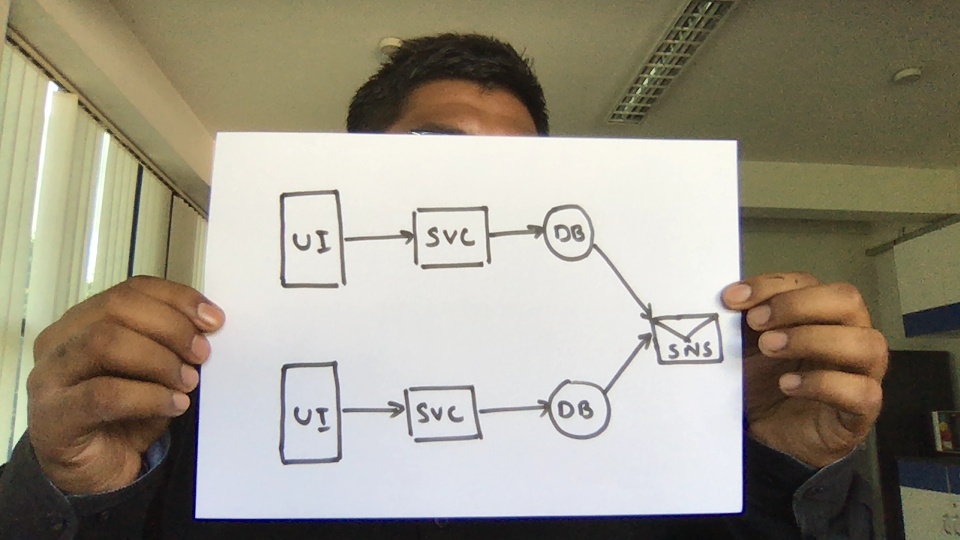 UI
SVC
DB
SNS
UI
SVC
DB